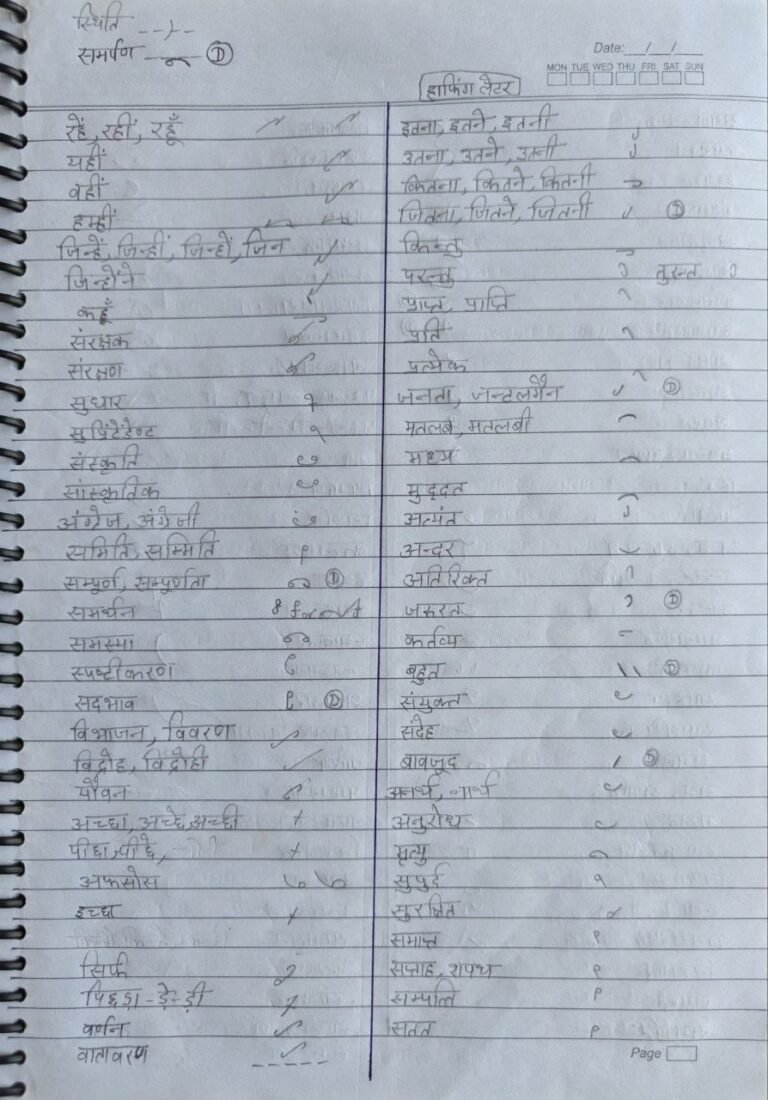 स्थिति
समर्पण Ⓓ
Date: __/__/__
MON TUE WED THU FRI SAT SUN
हाफिंग लेटर
रहें, रहीं, रहूँ
यहीं
वहीं
हम्हीं
जिन्हें, जिन्हीं, जिन्हों, जिन
जिन्होंने
कहूँ
संरक्षक
संरक्षण
सुधार
सुप्रिंटेंडेण्ट
संस्कृति
सांस्कृतिक
अंग्रेज, अंग्रेजी
समिति, सम्मिति
सम्पूर्ण, सम्पुर्णता Ⓓ
समर्थन
समस्या
स्पष्टीकरण
सदभाव Ⓓ
विभाजन, विवरण
विद्रोह, विद्रोही
यौवन
अच्छा, अच्छे, अच्छी
पीछा, पीछे,
अफसोस
इच्छा
सिर्फ
पिछड़ा-ड़े-ड़ी
वर्णन
वातावरण
इतना, इतने, इतनी
उतना, उतने, उतनी
कितना, कितने, कितनी
जितना, जितने, जितनी Ⓓ
किन्तु
परन्तु तुरन्त
प्राप्त, प्राप्ति
प्रति
प्रत्येक
जनता, जन्टलमैन Ⓓ
मतलब, मतलबी
मध्य
मुद्दत
अत्यंत
अन्दर
अतिरिक्त
जरूरत Ⓓ
कर्तव्य
बहुत Ⓓ
संयुक्त
संदेह
बावजूद Ⓓ
अनर्थ, नार्थ
अनुरोध
मृत्यु
सुपुर्द
सुरक्षित
समाप्त
सप्ताह, शपथ
सम्पत्ति
सतत
Page